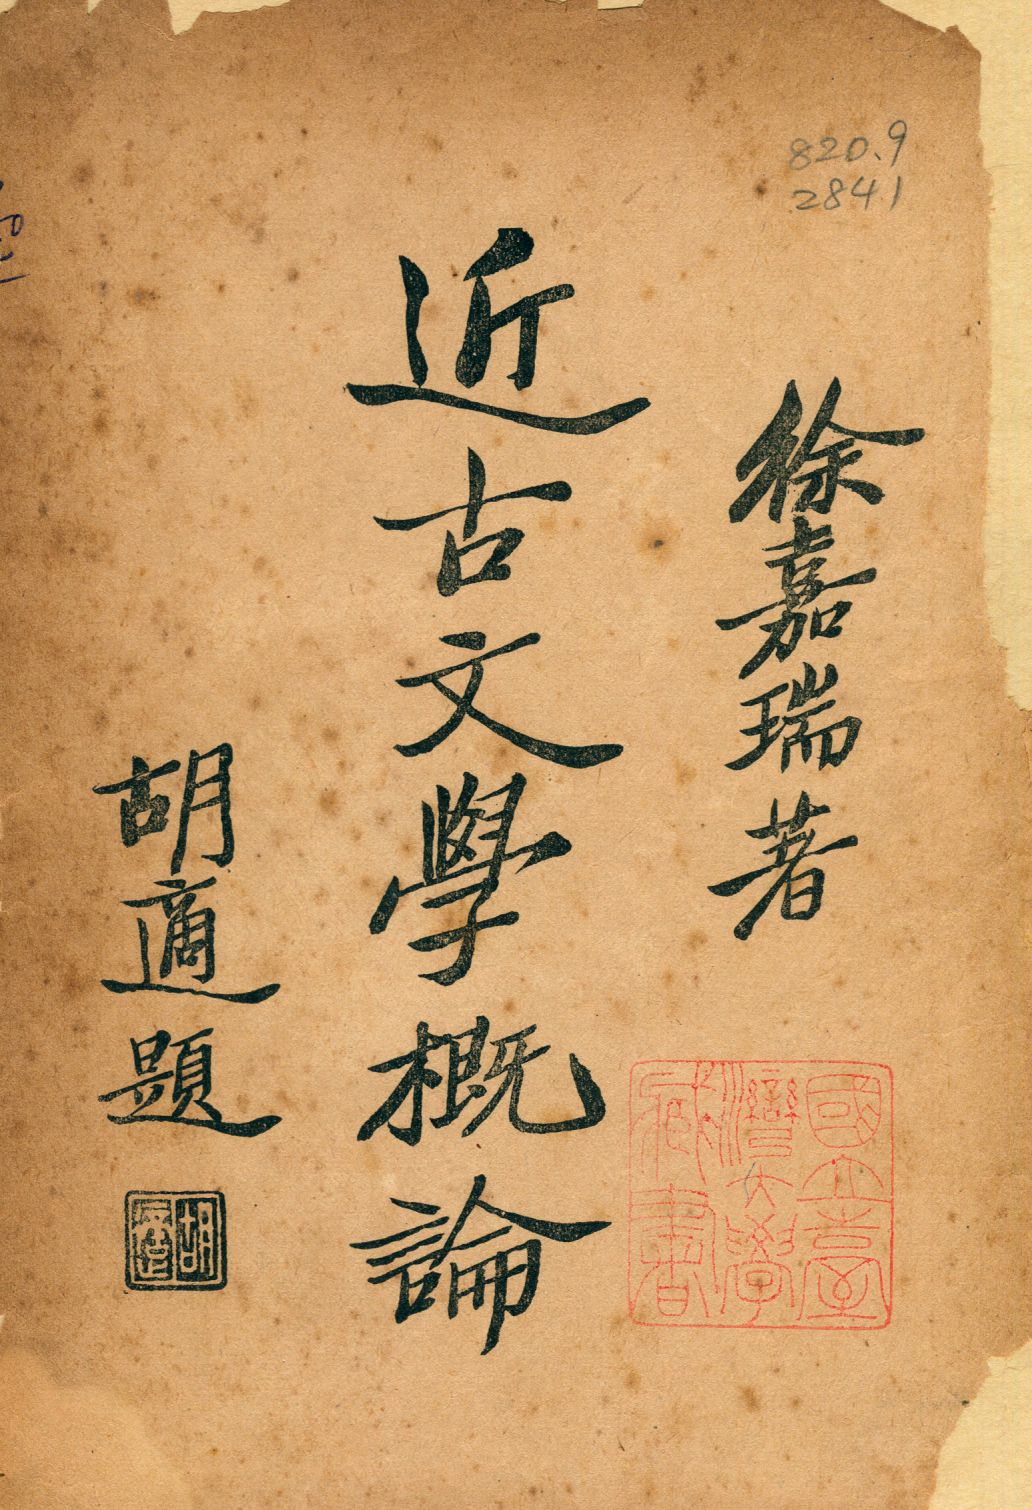 820.9
2841
徐嘉瑞著
近古文學概論
胡適題
國立臺
灣大學
藏書